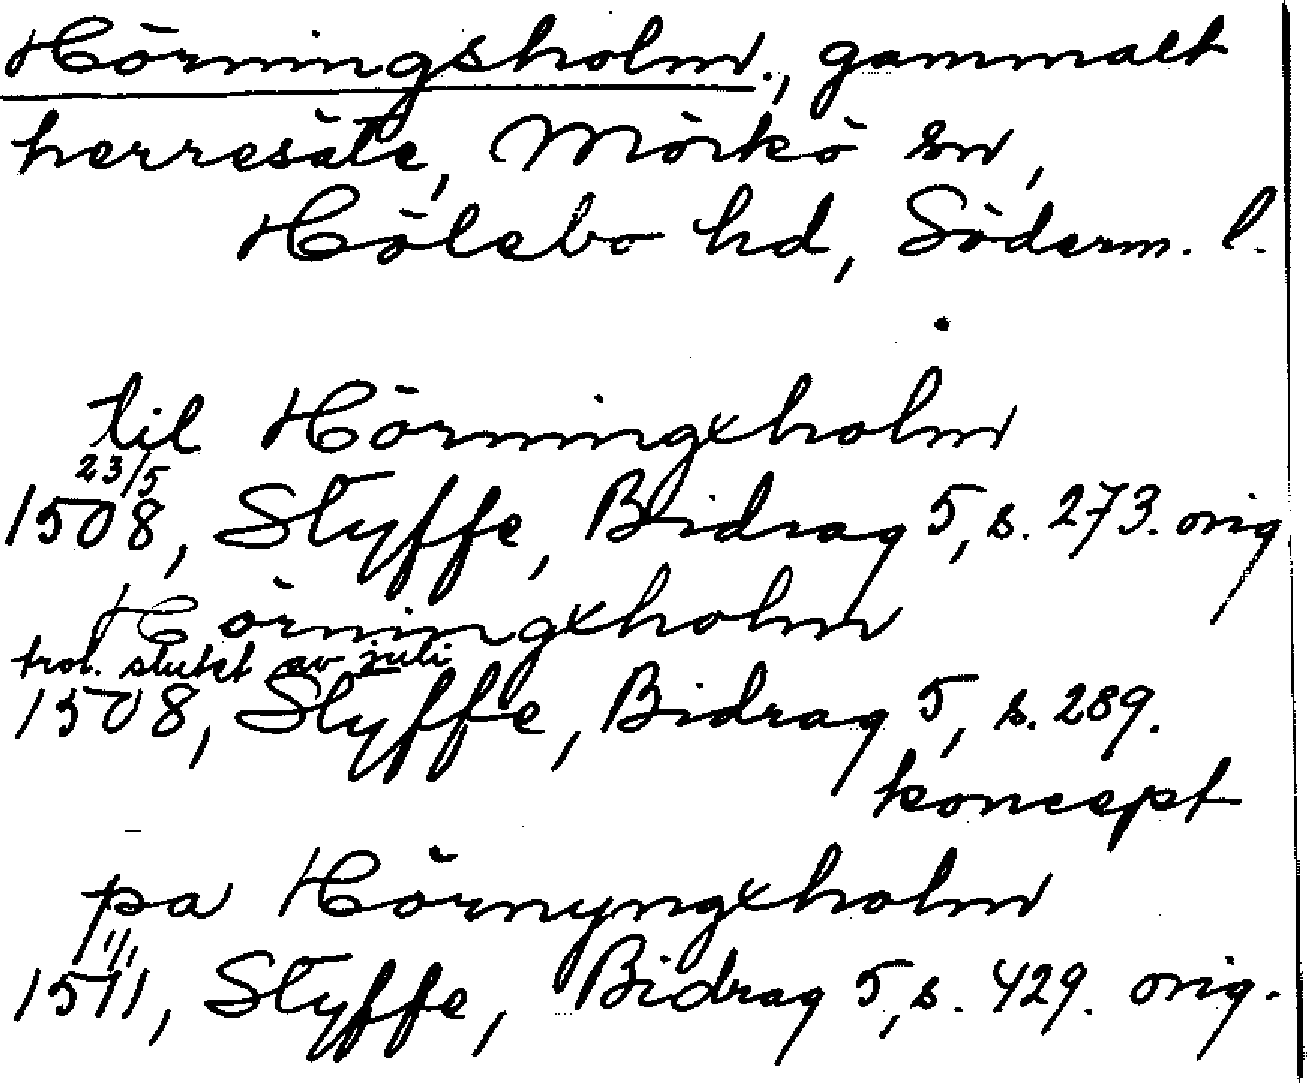 Hörningsholm., gammalt
herresäte, Mörkö sn,
Hölebo hd, Söderm. l.
til Hörningxholm
23/5
1508, Styffe, Bidrag 5, s. 273. orig
Hörningxholm
trol. slutet av juli
1508, Styffe, Bidrag 5, s. 289.
koncept
pa Hörnyngxholm
1/1
1511, Styffe, Bidrag 5, s. 429. orig.